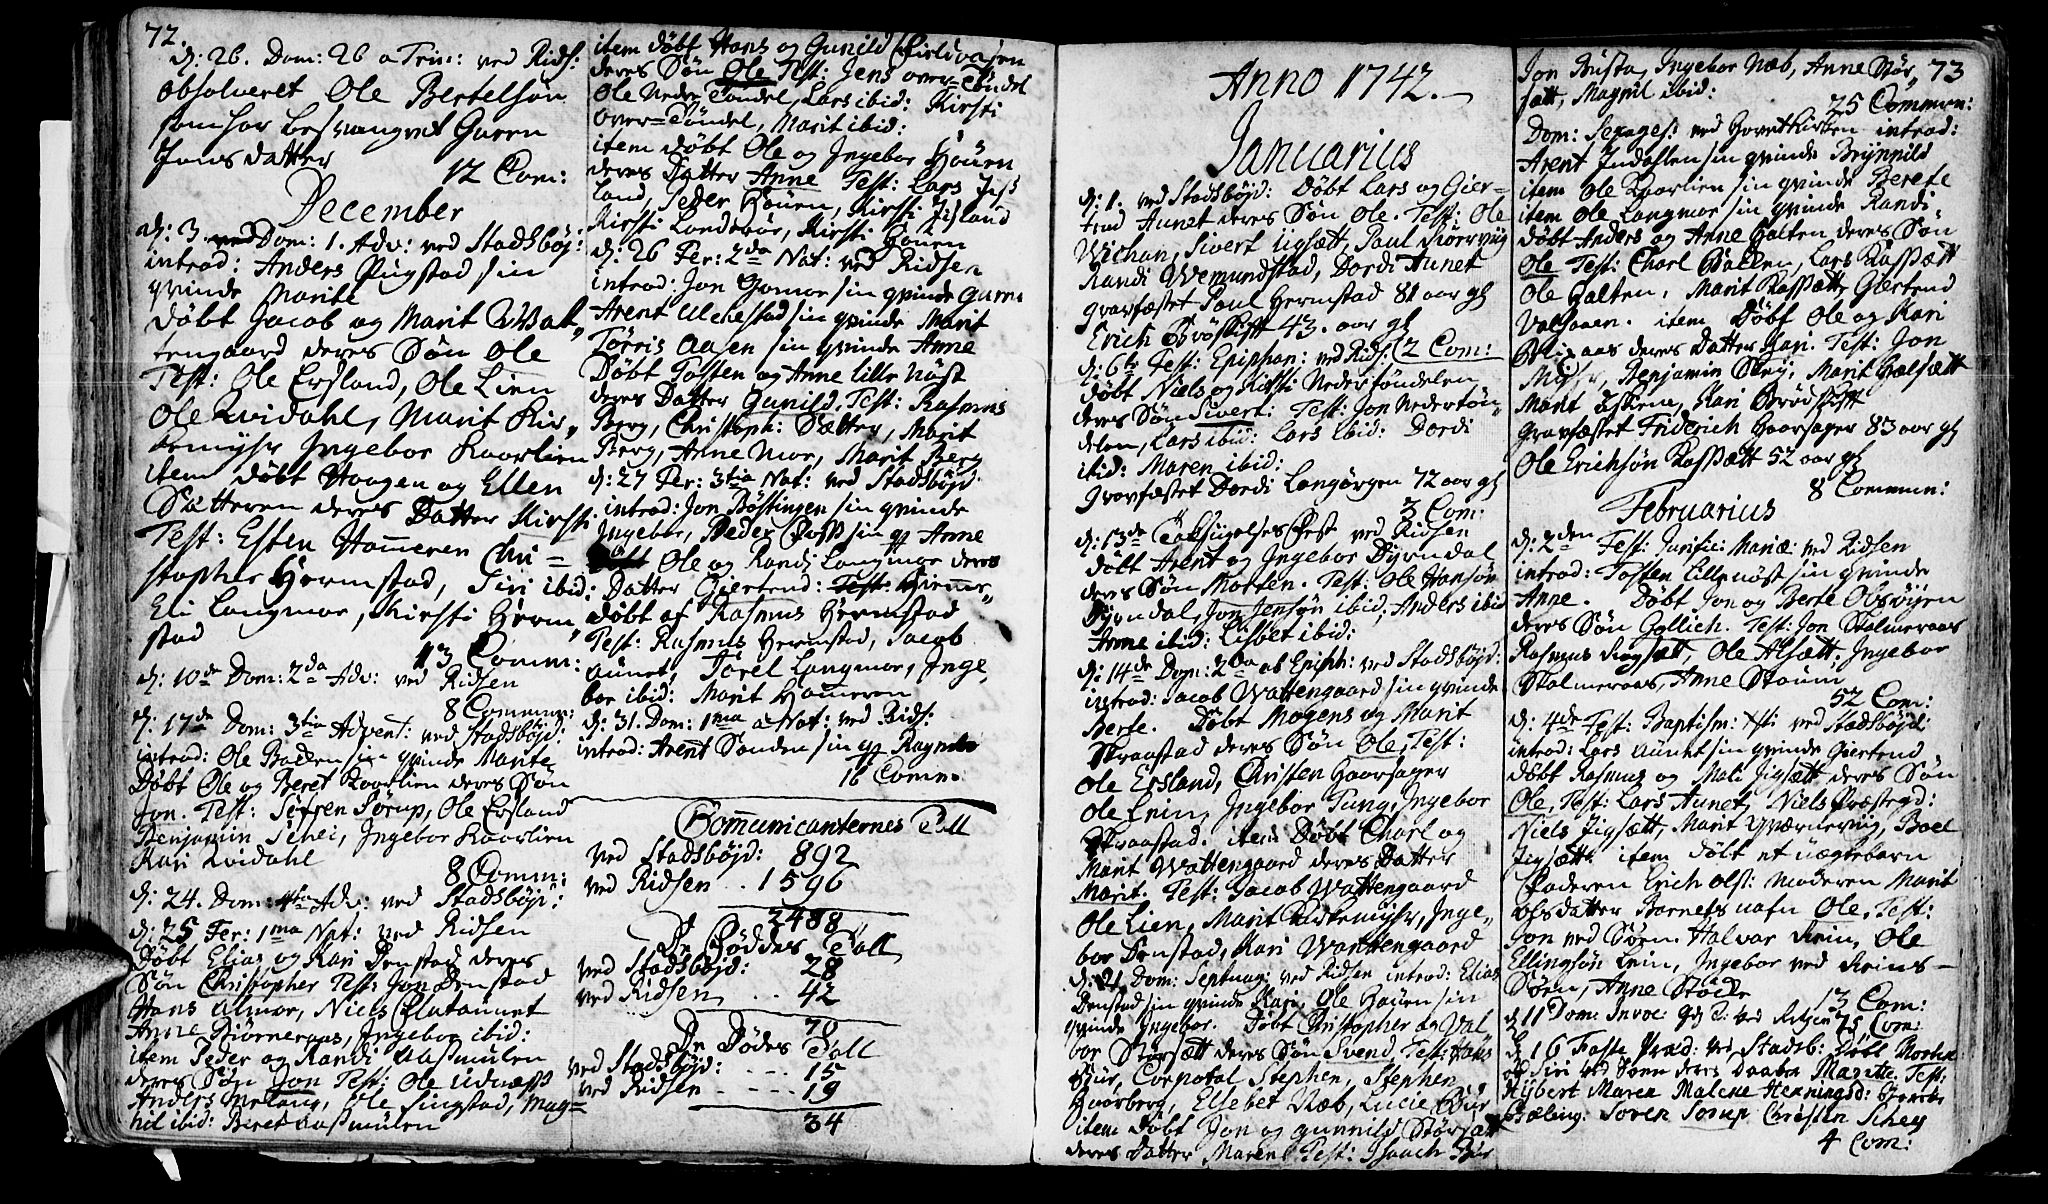 72.
d: 26. Dom: 26 a Trin: ved Rids:
absolveret Ole Bertelsøn
som har besvangret Guren
Jonsdatter
12 Com:
December
d: 3 Dom: 1. Adv: ved Stadsbøjd:
introd: Anders Pugstad sin
qvinde Marite
døbt Jacob og Marit Wat-
tengaard deres Søn Ole
Test: Ole Ersland, Ole Lien
Ole Qvidahl, Marit Kir-
kemyhr Ingebor Kaarlien
item døbt Haagen og Ellen
Sætteren deres Datter Kirsti
Test: Esten Hammeren Chri-
stopher Hermstad, Siri ibid:
Eli Langmor, Kirsti Herm-
stad
13 Comm:
d: 10de Dom: 2da Adv: ved
Ridsen
8 Commun:
d: 17de Dom: 3tia Advent: ved Stadsbøjd:
introd: Ole Balten sin qvinde Marite
Døbt Ole og Beret Kaarlien deres Søn
Jon. Test: Søfren Sørup, Ole Ersland
Benjamin Schei, Ingebor Kaarlien
Kari Qvidahl
8 Comm:
d: 24. Dom: 4ta Adv: ved Stadsbøjd:
d: 25 Fer: 1ma Nat: ved Ridsen
Døbt Elias og Kari Denstad deres
Søn Christopher Test: Jon Denstad
Hans Almor, Niels Plataunet
Anne Biørneraas, Ingebor ibid:
item Peder og Randi Aasmulen
deres Søn Jon Test: Ole Udnæss
Anders Meland, Ole Singstad, Mag-
nil ibid: Beret Aasmulen
item døbt Hans og Gunild
deres Søn Ole Test: Jens over-Tøndel
Ole Neder Tøndel, Lars ibid: Kirsti
over-Tøndel, Marit ibid:
item døbt Ole og Ingebor Houen
deres Datter Anne Test: Lars Jiss
land, Peder Houen, Kirsti Jisland
Kirsti Landerør, Kirsti Houen
d: 26 Fer: 2da Nat: ved Ridsen
introd: Jon Gamor sin qvinde Guru
Arent Ulchestad sin qvinde Marit
Tørris Aasen sin qvinde Anne
Døbt Tosten og Anne lille Nøst
deres Datter Gunild, Test: Rasmus
Berg, Christoph: Sætter, Marit
Berg, Anne Mor, Marit Berg
d: 27 Fer: 3tia Nat: ved Stadsbøjd:
introd: Jon Bøstingen sin qvinde
Ingebor, Peder Poss sin q: Anne
Døbt Ole og Randi Langmor deres
Datter Giertrud: Test: Hierms-
døbt af Rasmus Hermstad
Test: Rasmus Hermstad, Jacob
Aunet, Torel Langmor, Inge-
bor ibid: Marit Hameren
d: 31. Dom: 1ma a Nat: ved Rids:
introd: Arent Sanden sin q: Ragnil
16 Comm:
Communicanternes Tall
ved Stadsbøjd: 892
ved Ridsen .. 1596
2488
De Døbdes Tall
ved Stadsbøjd: 28
ved Ridsen .. 42
70
De Dødes Tall
ved Stadsbøjd: ... 15
ved Ridsen ... 19
34
Anno 1742.
Januarius
d: 1. ved Stadsbøjd: Døbt Lars og Gier-
trud Aunet deres Søn Ole. Test: Ole
Wichan, Sivert Ligsætt, Paul Biørrvig
Randi Wemundstad, Dordi Aunet
gravfæstet Paul Hermstad 81 aar gl
Erich Brøskift 43. aar gl
d: 6te Fest: Epiphan: ved Rids: 12 Com:
døbt Niels og Kirsti Neder tøndelen
deres Søn Sivert: Test: Jon Nedertøn-
delen, Lars ibid: Lars ibid: Dordi
ibid: Maren ibid:
gravfæstet Dordi Langørgen 72 aar gl
3 Com:
d: 13de Taksigelses Fest ved Ridsen
døbt Arent og Ingebor Dyrndal
deres Søn Morten. Test: Ole Hansøn
Dyrndal, Jon Jensøn ibid, Anders ibid
Anne ibid: Lisbet ibid:
d: 14de Dom: 2da ab Epiph: ved Stadsbøjd:
introd: Jacob Wattengaard sin qvinde
Berte. Døbt Mogens og Marit
Skraastad deres Søn Ole, Test:
Ole Ersland, Christen Haarsager
Ole Lein, Ingebor Tung, Ingebor
Skraastad. item Døbt Charl og
Marit Wattengaard deres Datter
Marit. Test: Jacob Wattengaard
Ole Lien, Marit Kirkemyhr, Inge-
bor Denstad, Kari Wattengaard
d: 21 Dom: Septuag: ved Ridsen introd: Elias
Denstad sin qvinde Kari, Ole Houen sin
qvinde Ingebor. Døbt Christopher og Val-
bor Størsætt deres Søn Svend, Test: Hans
Buur, Corporal Stephen, Stephen
Haarberg, Elsebet Næb, Lucie Buur
item døbt Jon og gunnild Størsætt
deres Datter Maren Test: Isaach Bur
73
Jon Busta, Ingebor Næb, Anne Stør-
sætt, Magnil ibid:
25 Commun:
Dom: Sexages: ved Hovetkirken introd:
Arent Indahlen sin qvinde Brynnild
item Ole Kaarlien sin qvinde Berete
item Ole Langmor sin qvinde Randi
døbt Anders og Anne Halten deres Søn
Ole Test: Charl Balten, Lars Rassætt
Ole Halten, Marit Rassætt Giertrud
Valsaaen. item Døbt Ole og Kari
Blixaas deres Datter Kari. Test: Jon
Myhr, Benjamin Schey, Marit Hælsætt
Marit Askene, Kari Brødskift
gravfæstet Friderich Haarsager 83 aar gl
Ole Erichsøn Rassætt 52 aar gl
8 Commun:
Februarius
d: 2den Fest: Purific: Mariæ: ved Ridsen
introd: Tosten Lillenøst sin qvinde
Anne. Døbt Jon og Berte Obsvyen
deres Søn Gollich. Test: Jon Stalmeraas
Rasmus Rogsætt, Ole Alsætt, Ingebor
Stalmeraas, Anne Staum
52 Com:
d: 4de Fest: Baptism: Xsti ved Stadsbøjd
introd: Lars Aunet sin qvinde Giertrud
døbt Rasmus og Mali Jigsætt deres Søn
Ole, Test: Lars Aunet, Niels Præstegd:
Niels Jigsætt, Marit Qværnevig, Boel
Jigsætt. item døbt et uægtebarn
Faderen Erich Ols: Moderen Marit
Olsdatter Barnets nafn Ole, Test:
Jon ved Søen. Halvar Rein, Ole
Ellingsøn Lein, Ingebor ved Reins-
Søen, Anne Støde
13 Com:
d 11 Dom: Invoc: ved Ritzen 75 Com:
d 16 Faste Præd: ved Stadsb: Døbt Morten
og Siri ved Søen deres Daatter Maritte. Test:
Hybert Maren Malene Hennigsd:
Bæling. Soren Sorup Christen Schey
4 Com: